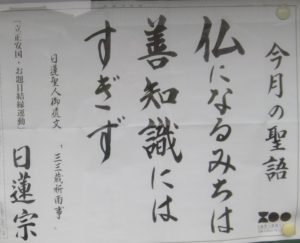 今月の聖語
仏になるみちは
善知識には
すぎず
日蓮聖人御遺文
「三三蔵祈雨事」
「立正安国・お題目結縁運動」
日蓮宗